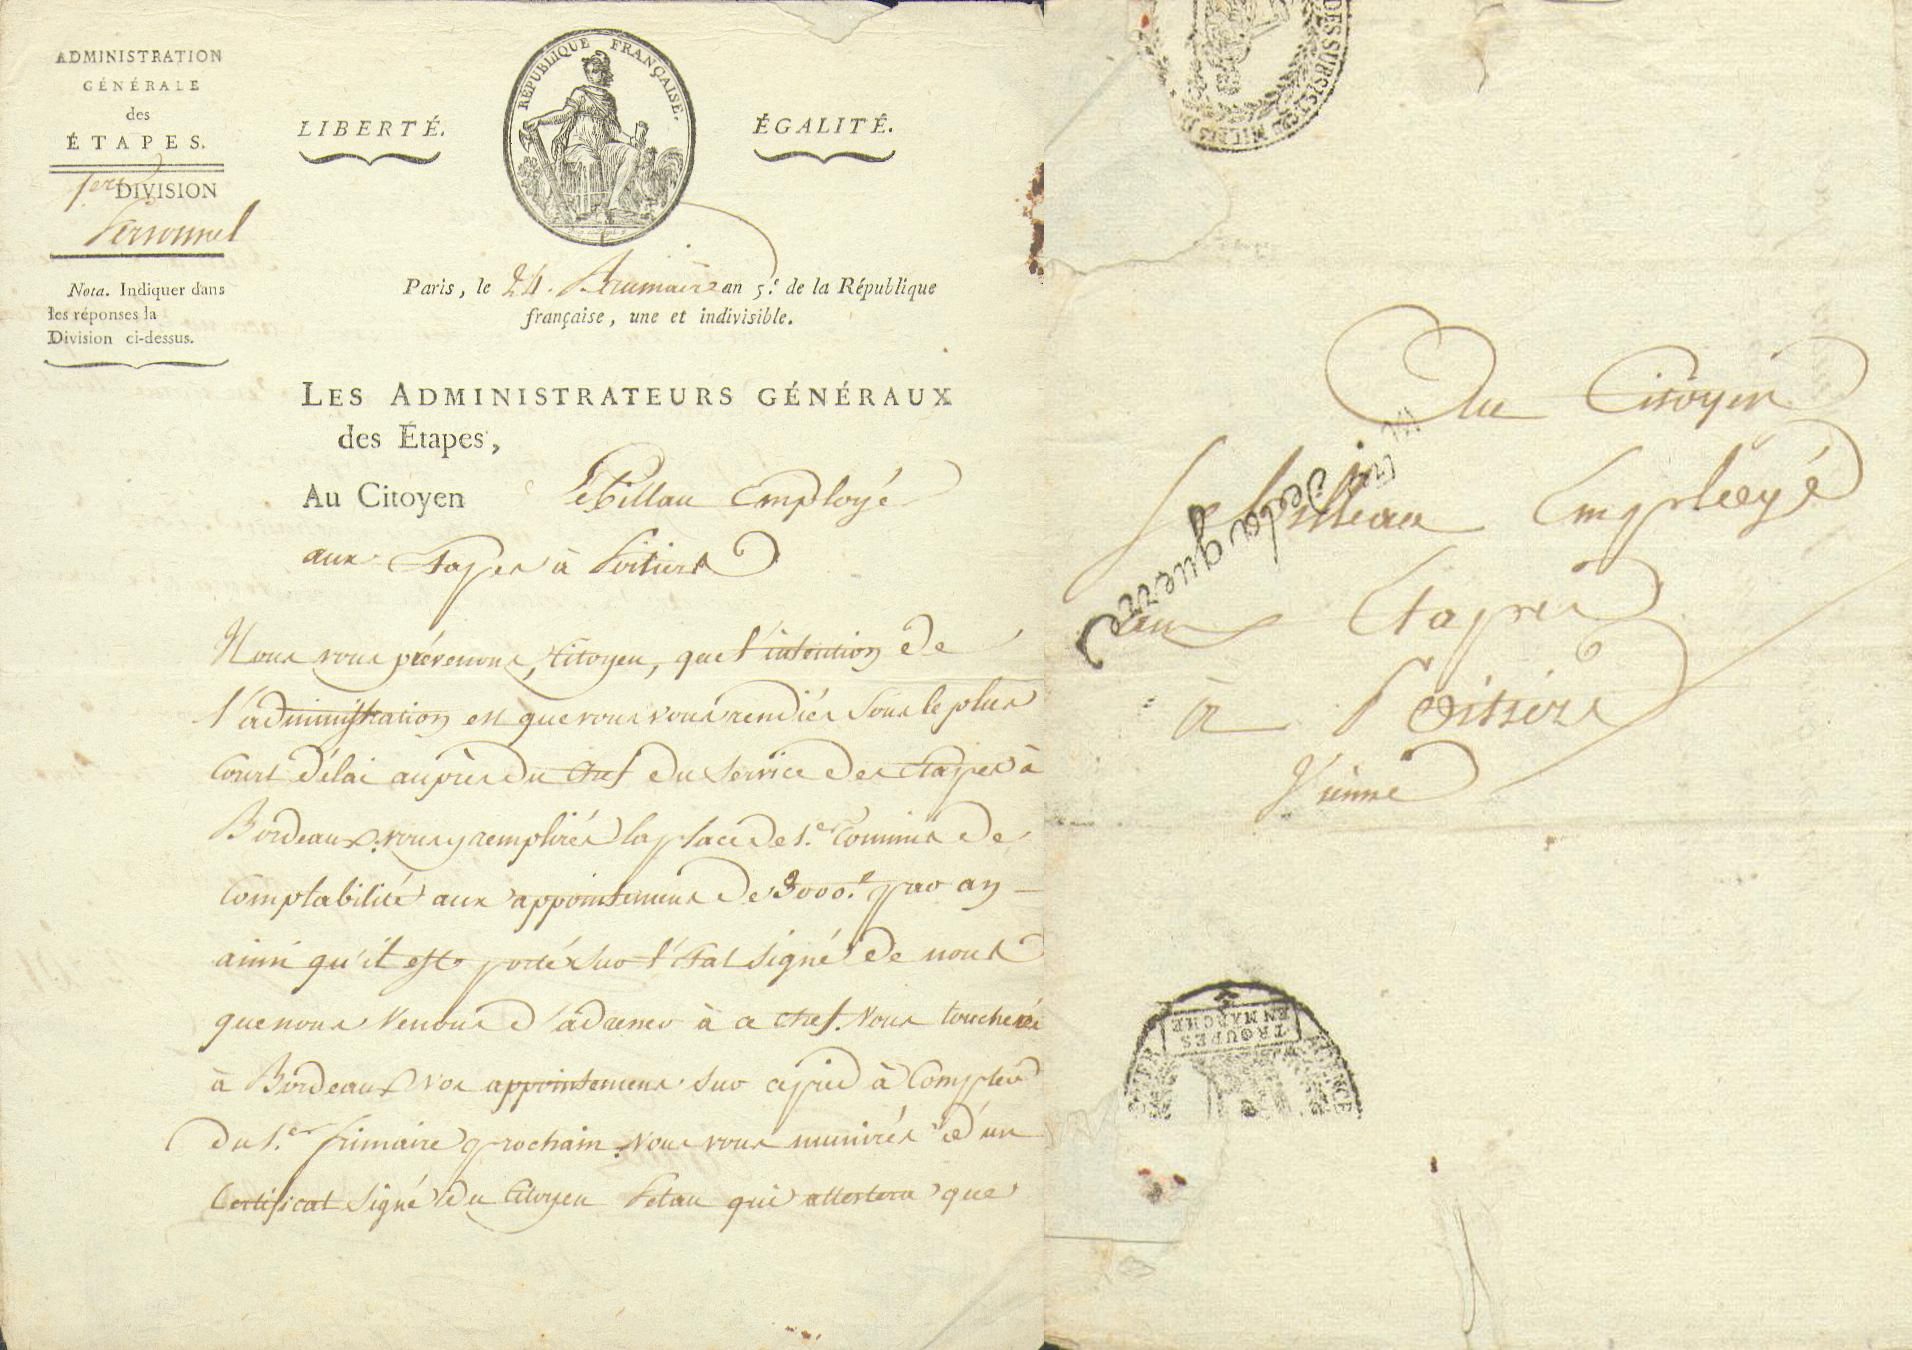 ADMINISTRATION
GÉNÉRALE
des
ÉTAPES.
1ere DIVISION
Personnel
Nota. Indiquer dans
les réponses la
Division ci-dessus.
LIBERTÉ.
RÉPUBLIQUE FRANÇAISE.
ÉGALITÉ.
Paris, le 24. Brumaire an 5.e de la République
française, une et indivisible.
LES ADMINISTRATEURS GÉNÉRAUX
des Étapes,
Au Citoyen Lebillau Employé
aux Etapes à Poitiers
Nous vous prévenons, Citoyen, que l'intention de
l'administration est que vous vous rendiés sous le plus
court délai auprès du chef du service des étapes à
Bordeaux. vous y remplirés la place de 1.er Commis de
Comptabilité aux appointemens de 3000.f par an
ainsi qu'il est porté sur l'état signé de nous
que nous venons d'adresser à ce chef. Vous toucherés
à Bordeaux vos appointemens sur ce pied à compter
du 1.er frimaire prochain. Vous vous munirés d'un
Certificat signé du Citoyen Petau qui attestera que
DES SUBSISTces MILres
Au Citoyen
Lebilleau Employé
aux Etapes
à Poitiers
Vienne
de la guerre
TROUPES
EN MARCHE